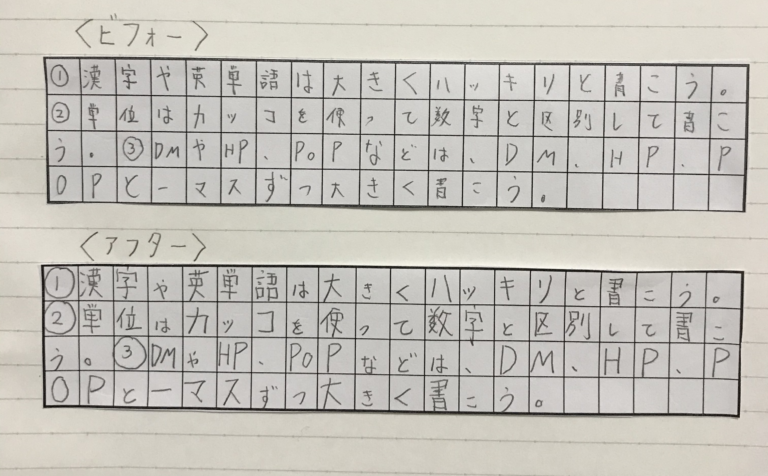 〈ビフォー〉
①漢字や英単語は大きくハッキリと書こう。
②単位はカッコを使って数字と区別して書こ
う。③DMやHP、POPなどは、DM、HP、P
OPと一マスずつ大きく書こう。
〈アフター〉
①漢字や英単語は大きくハッキリと書こう。
②単位はカッコを使って数字と区別して書こ
う。③DMやHP、POPなどは、DM、HP、P
OPと一マスずつ大きく書こう。